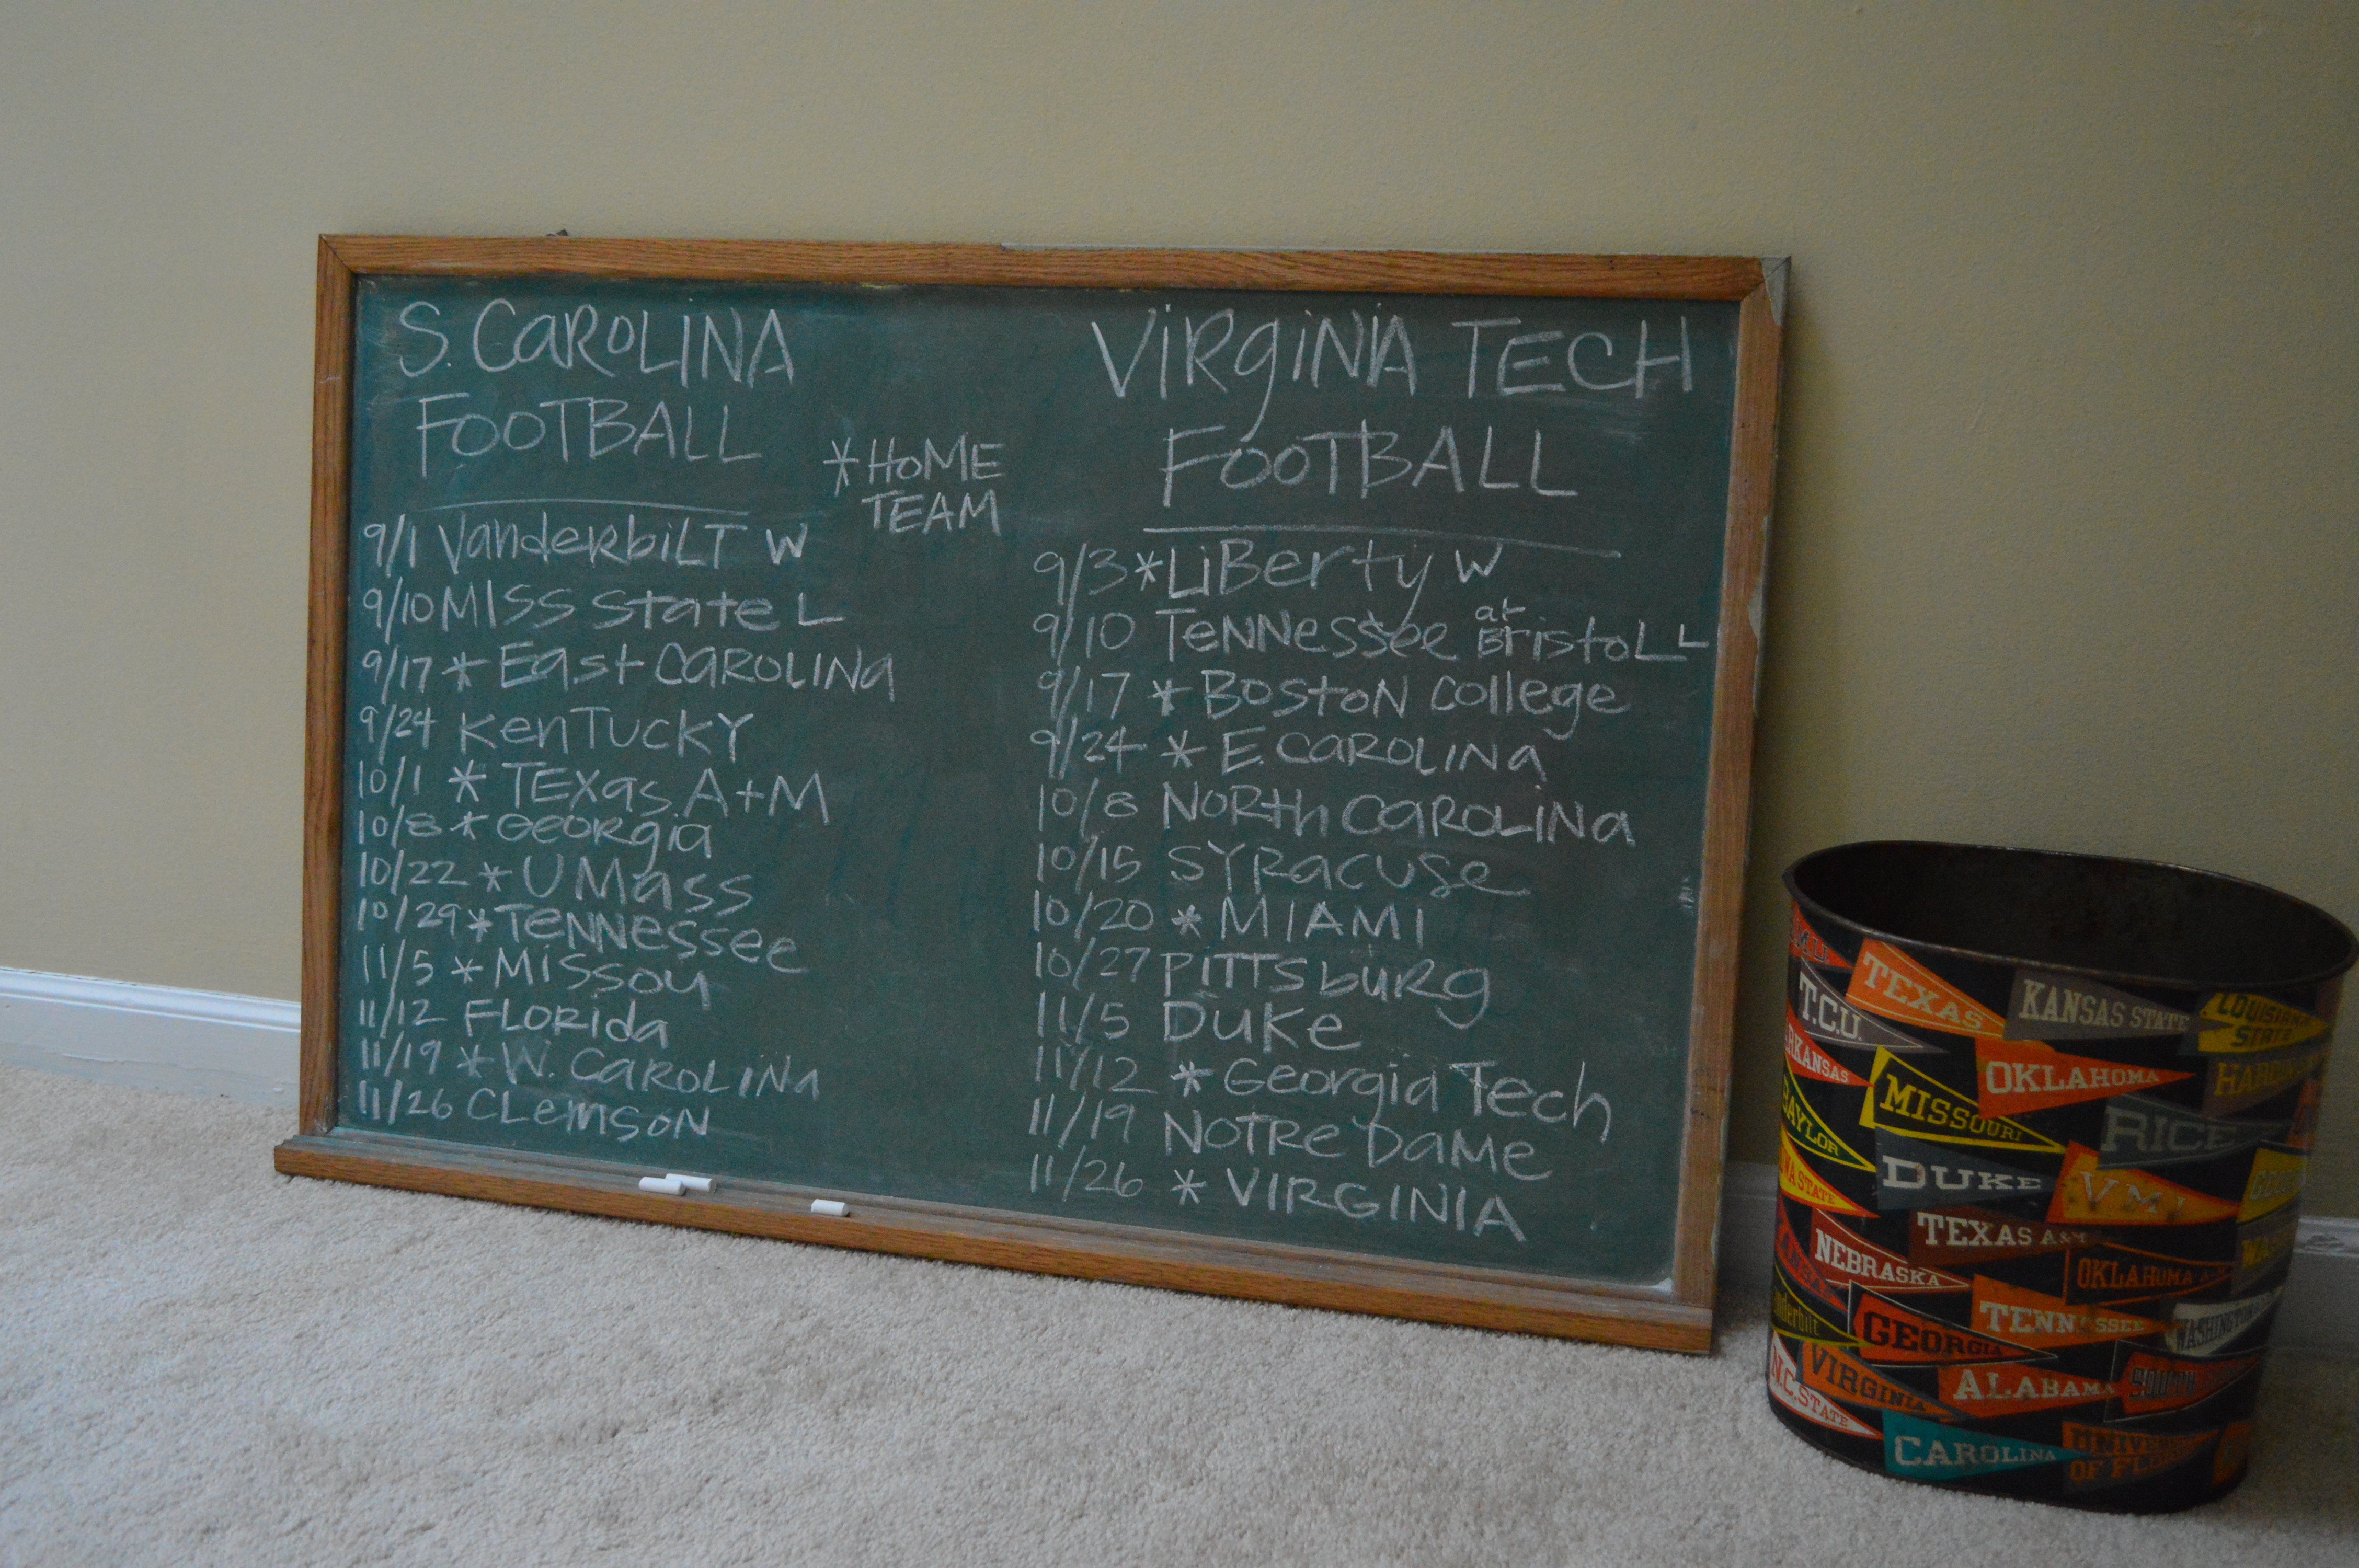 S. CAROLINA
FOOTBALL
* HOME
TEAM
9/1 Vanderbilt W
9/10 MISS State L
9/17 * East CAROLINA
9/24 Kentucky
10/1 * TEXAS A+M
10/8 * Georgia
10/22 * UMass
10/29 * Tennessee
11/5 * Missou
11/12 Florida
11/19 * W. CAROLINA
11/26 Clemson
VIRGINIA TECH
FOOTBALL
9/3 * Liberty W
9/10 Tennessee at Bristol L
9/17 * Boston College
9/24 * E. CAROLINA
10/8 North CAROLINA
10/15 Syracuse
10/20 * MIAMI
10/27 Pittsburg
11/5 Duke
11/12 * Georgia Tech
11/19 Notre Dame
11/26 * VIRGINIA
TEXAS
KANSAS STATE
LOUISIANA
STATE
T.C.U.
OKLAHOMA
MISSOURI
RICE
BAYLOR
DUKE
V M I
TEXAS A&M
NEBRASKA
OKLAHOMA
TENNESSEE
GEORGIA
VIRGINIA
ALABAMA
N.C. STATE
CAROLINA